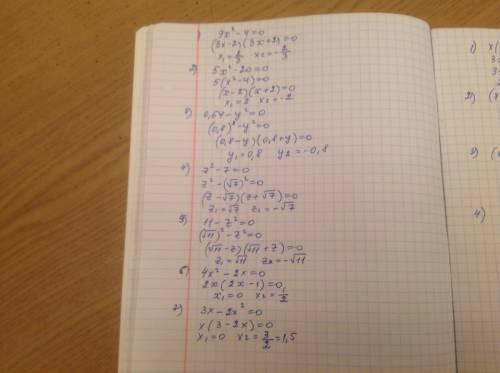 1) 9x²-4=0
(3x-2)(3x+2)=0
x₁=2/3 x₂=-2/3
2) 5x²-20=0
5(x²-4)=0
(x-2)(x+2)=0
x₁=2 x₂=-2
3) 0,64-y²=0
(0,8)²-y²=0
(0,8-y)(0,8+y)=0
y₁=0,8 y₂=-0,8
4) z²-7=0
z²-(√7)²=0
(z-√7)(z+√7)=0
z₁=√7 z₂=-√7
5) 11-z²=0
(√11)²-z²=0
(√11-z)(√11+z)=0
z₁=√11 z₂=-√11
6) 4x²-2x=0
2x(2x-1)=0
x₁=0 x₂=1/2
7) 3x-2x²=0
x(3-2x)=0
x₁=0 x₂=3/2=1,5
1)
2)
3)
4)